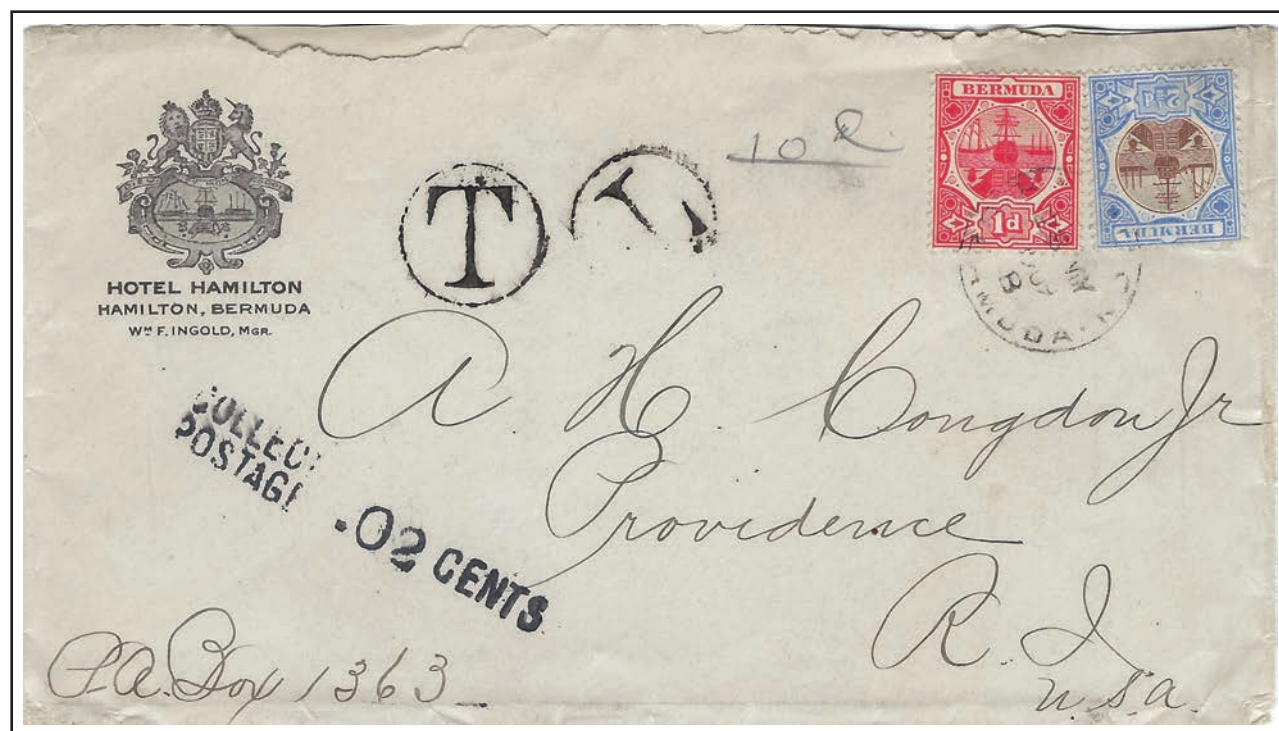 HOTEL HAMILTON
HAMILTON, BERMUDA
WM F. INGOLD, MGR.
T
10
BERMUDA
1d
2½d
BERMUDA
BERMUDA
COLLECT
POSTAGE
.02 CENTS
A. H. Congdon Jr
Providence
R. I.
U.S.A.
P.O. Box 1363